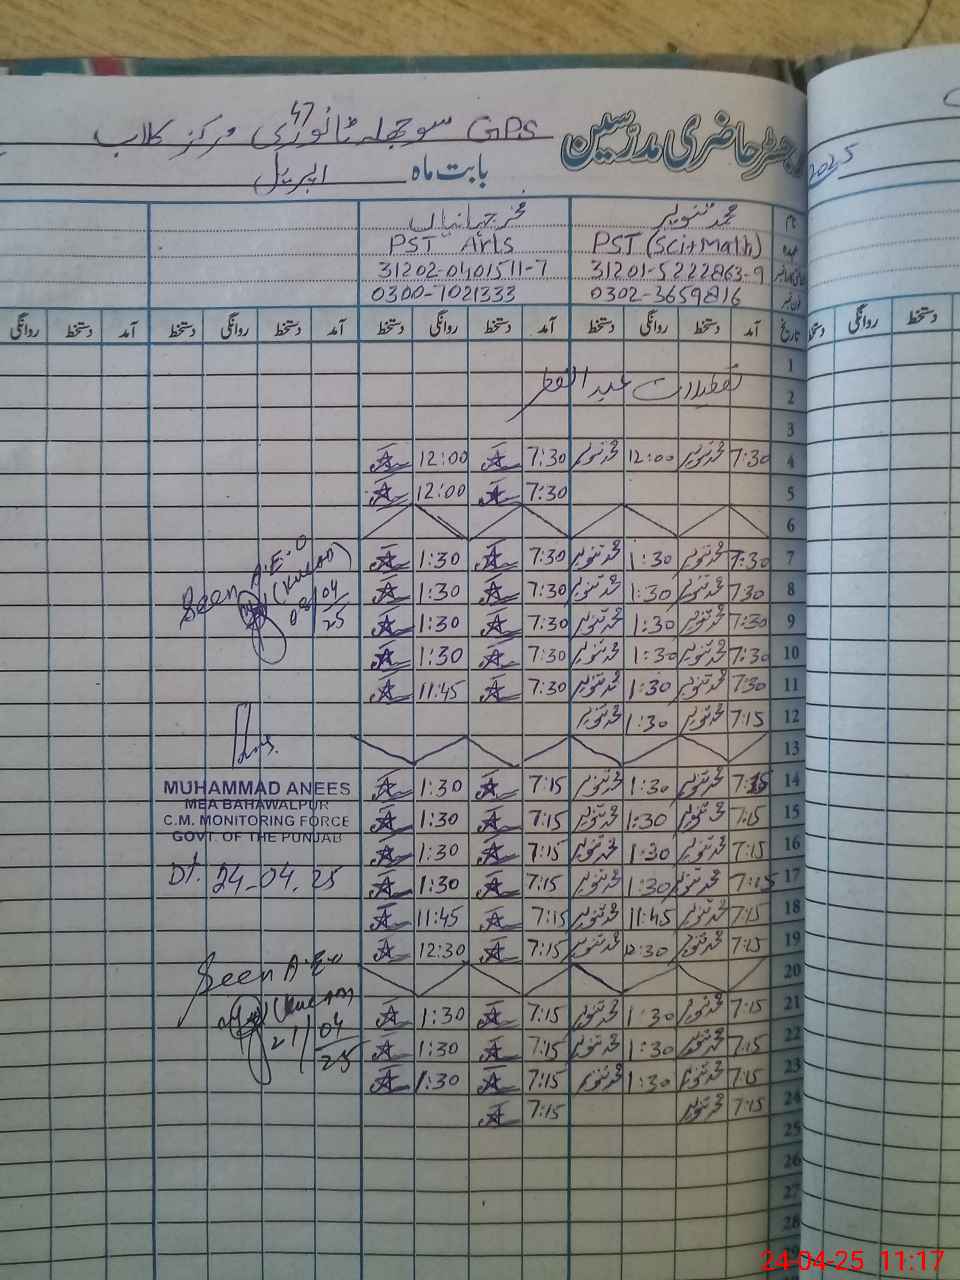 رجسٹر حاضری مدرسین GPS سوجھلہ ٹانوری 47 مرکز کلاب
2025
بابت ماہ اپریل
نام محمد تنویر فخر جہانیاں
عہدہ PST (Sci+Math) PST Arts
31201-5222863-9 31202-0401511-7
فون نمبر 0302-3659816 0300-7021333
تاریخ آمد دستخط روانگی دستخط آمد دستخط روانگی دستخط آمد دستخط روانگی دستخط آمد دستخط روانگی
دستخط روانگی دستخط
1
2 تعطیلات عید الفطر
3
4 7:30 محمد تنویر 12:00 محمد تنویر 7:30 12:00
5 7:30 12:00
6
7 7:30 محمد تنویر 1:30 محمد تنویر 7:30 1:30
8 7:30 محمد تنویر 1:30 محمد تنویر 7:30 1:30
9 7:30 محمد تنویر 1:30 محمد تنویر 7:30 1:30
10 7:30 محمد تنویر 1:30 محمد تنویر 7:30 1:30
11 7:30 محمد تنویر 1:30 محمد تنویر 7:30 11:45
12 7:15 محمد تنویر 1:30 محمد تنویر
13
14 7:15 محمد تنویر 1:30 محمد تنویر 7:15 1:30
15 7:15 محمد تنویر 1:30 محمد تنویر 7:15 1:30
16 7:15 محمد تنویر 1:30 محمد تنویر 7:15 1:30
17 7:15 محمد تنویر 1:30 محمد تنویر 7:15 1:30
18 7:15 محمد تنویر 11:45 محمد تنویر 7:15 11:45
19 7:15 محمد تنویر 12:30 محمد تنویر 7:15 12:30
20
21 7:15 محمد تنویر 1:30 محمد تنویر 7:15 1:30
22 7:15 محمد تنویر 1:30 محمد تنویر 7:15 1:30
23 7:15 محمد تنویر 1:30 محمد تنویر 7:15 1:30
24 7:15 محمد تنویر 7:15
25
26
27
28
29
Seen A.E.O
08/04/25
MUHAMMAD ANEES
MEA BAHAWALPUR
C.M. MONITORING FORCE
GOVT. OF THE PUNJAB
Dt. 24-04.25
Seen A.E.O
21/04/25
24-04-25 11:17